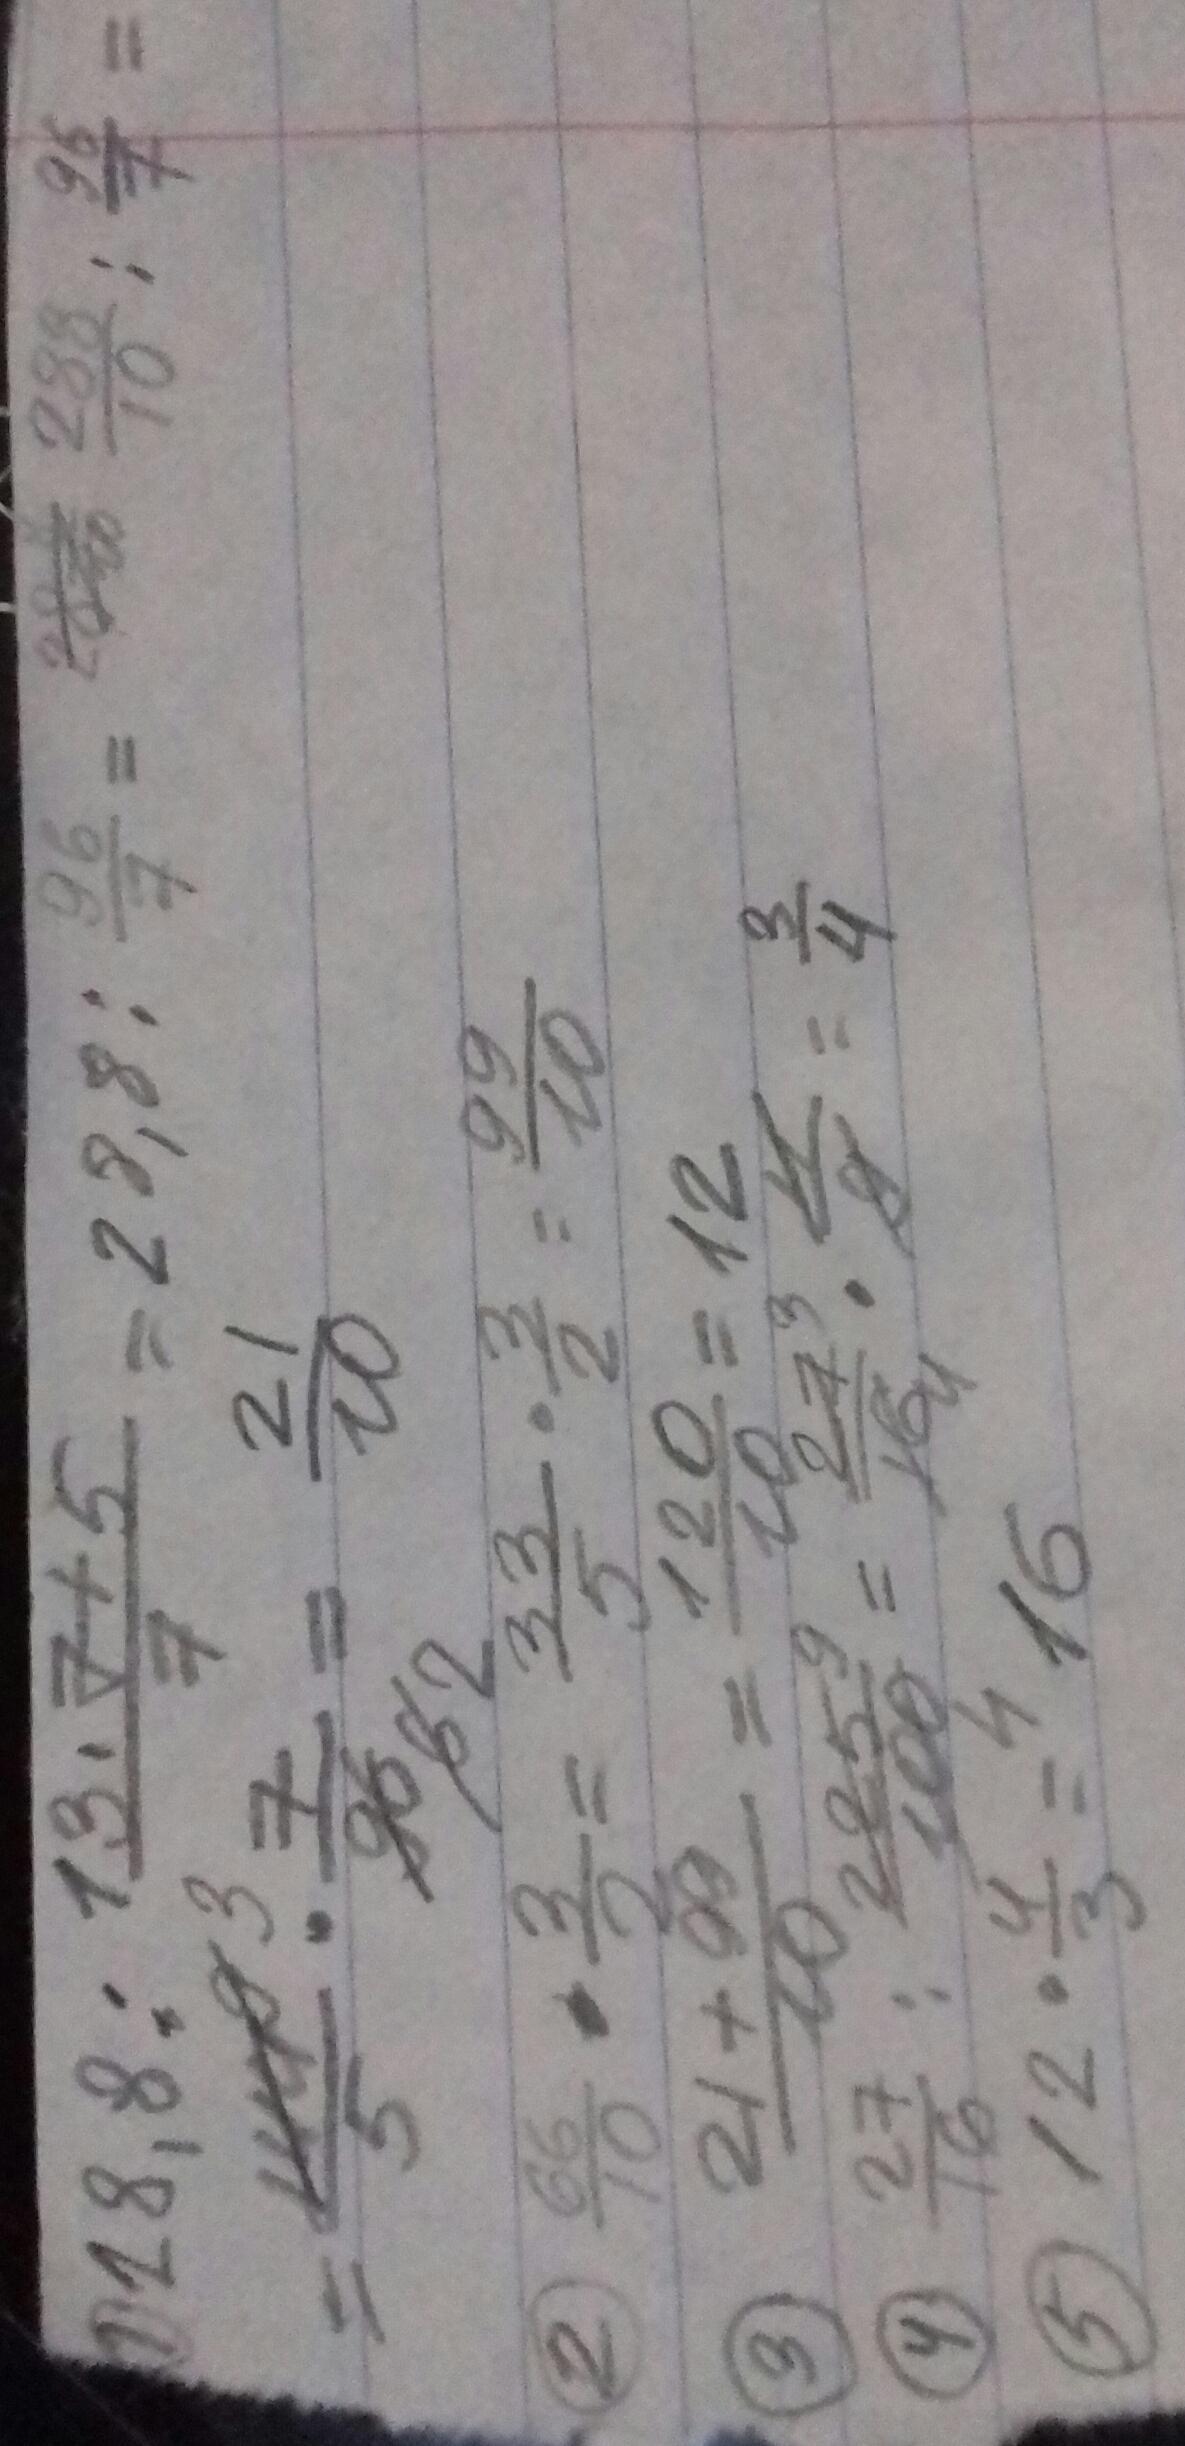 1) 28,8 : (13·7+5)/7 = 28,8 : 96/7 = 288/10 : 96/7 =
= 144 3/5 · 7/96 2 = 21/10
② 66/10 · 3/2 = 33/5 · 3/2 = 99/10
③ (21+99)/10 = 120/10 = 12
④ 27/16 : 225 9/100 4 = 27 3/16 4 · 4/9 = 3/4
⑤ 12 · 4/3 = 16